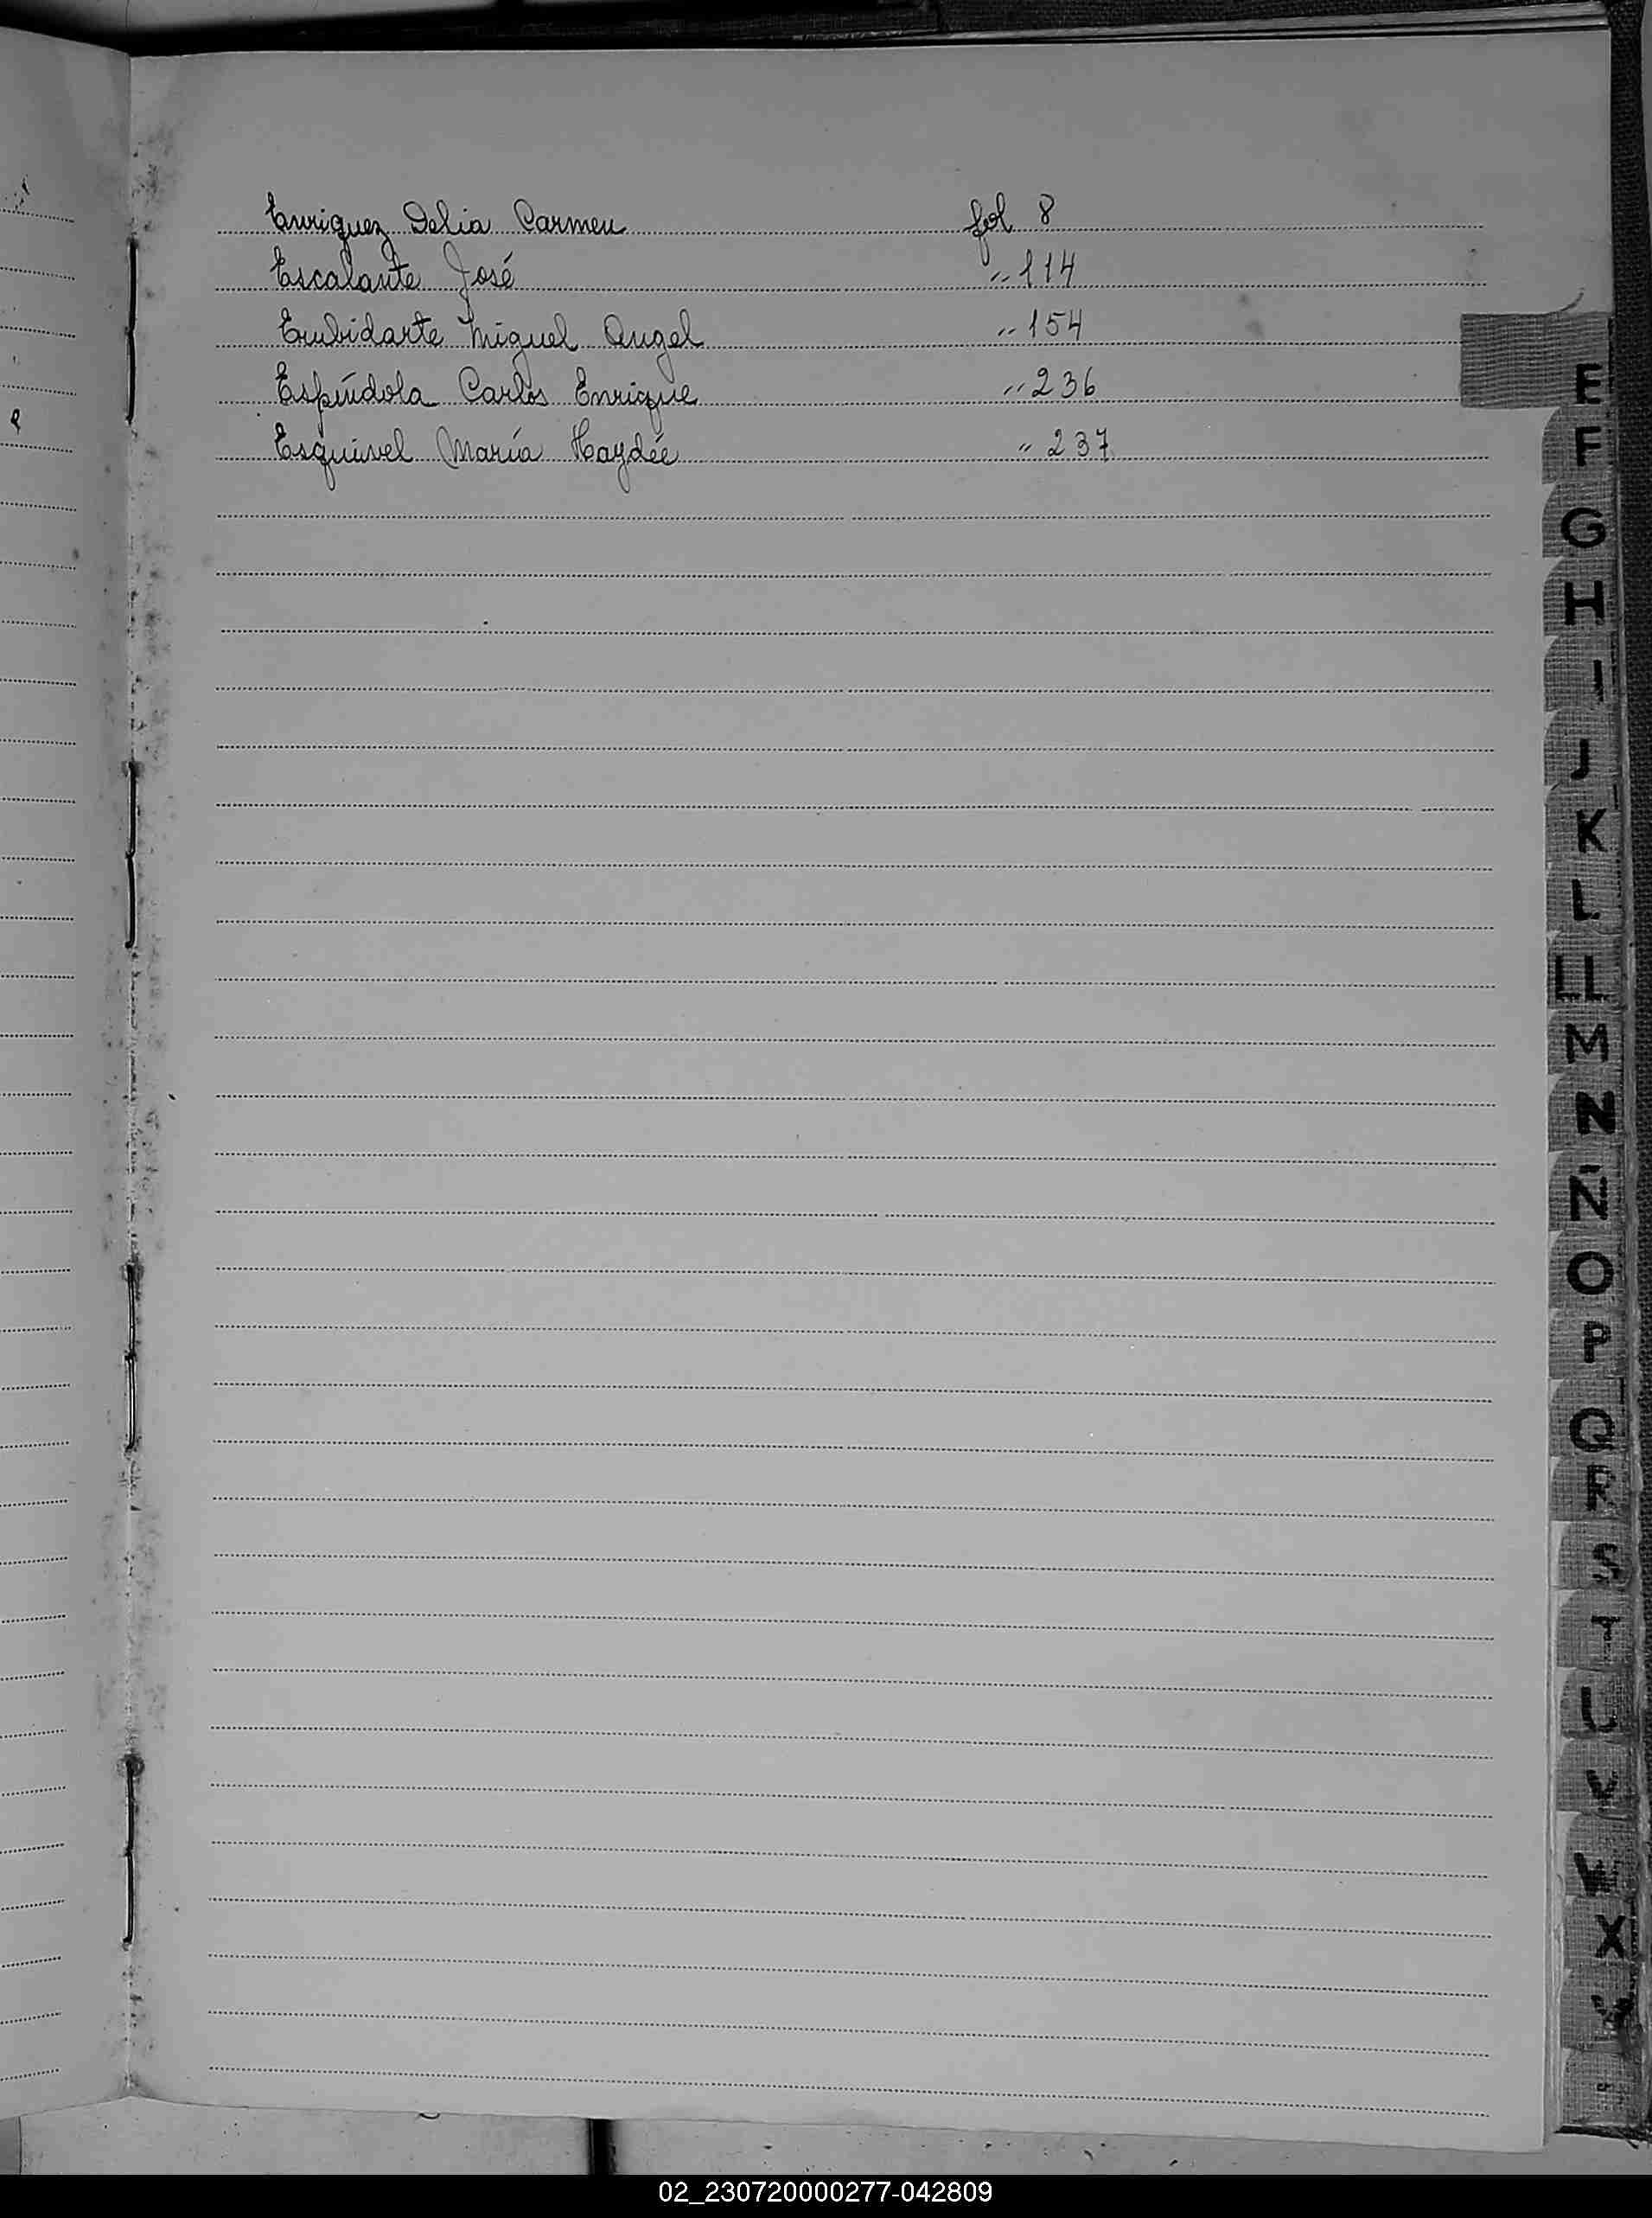 Enriquez Delia Carmen fol 8
Escalante José " 114
Erubidarte Miguel Angel " 154
Espíndola Carlos Enrique " 236
Esquivel María Haydée " 237
E
F
G
H
I
J
K
L
LL
M
N
Ñ
O
P
Q
R
S
T
U
V
W
X
02_230720000277-042809